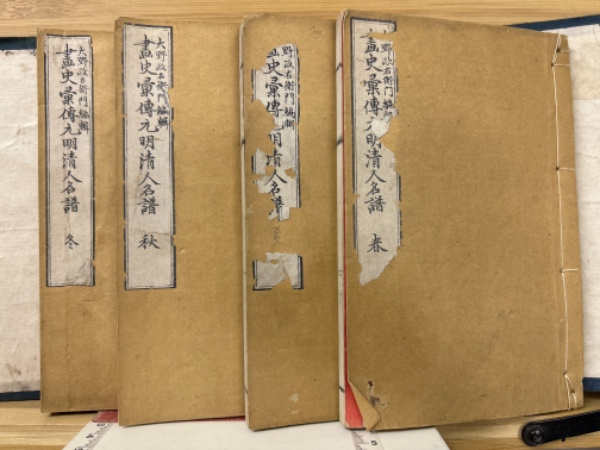 野政右衛門編
畫史彙傳元明清人名譜 春
野政右衛門編輯
史彙傳元明清人名譜
大野政右衛門編輯
畫史彙傳元明清人名譜 秋
大野政右衛門編輯
畫史彙傳元明清人名譜 冬
5